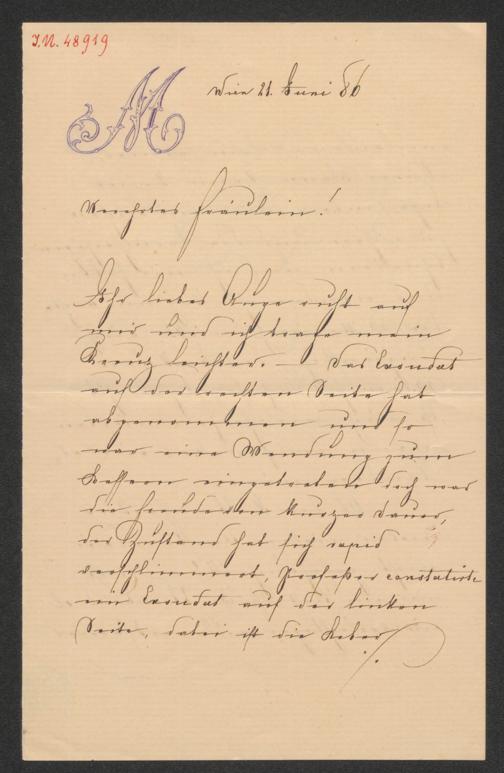 I.N. 48919
M
Wien 21. Juni 86
Verehrtes Fräulein!
Ihr liebes Auge ruht auf
mir und ich trage mein
Kreuz leichter. — Das Exsudat
auf der rechten Seite hat
abgenommen und so
war eine Wendung zum
Bessern eingetreten doch war
die Freude von kurzer Dauer,
der Zustand hat sich rapid
verschlimmert, Professor constatirte
ein Exsudat auf der linken
Seite, dabei ist die Leber
./.